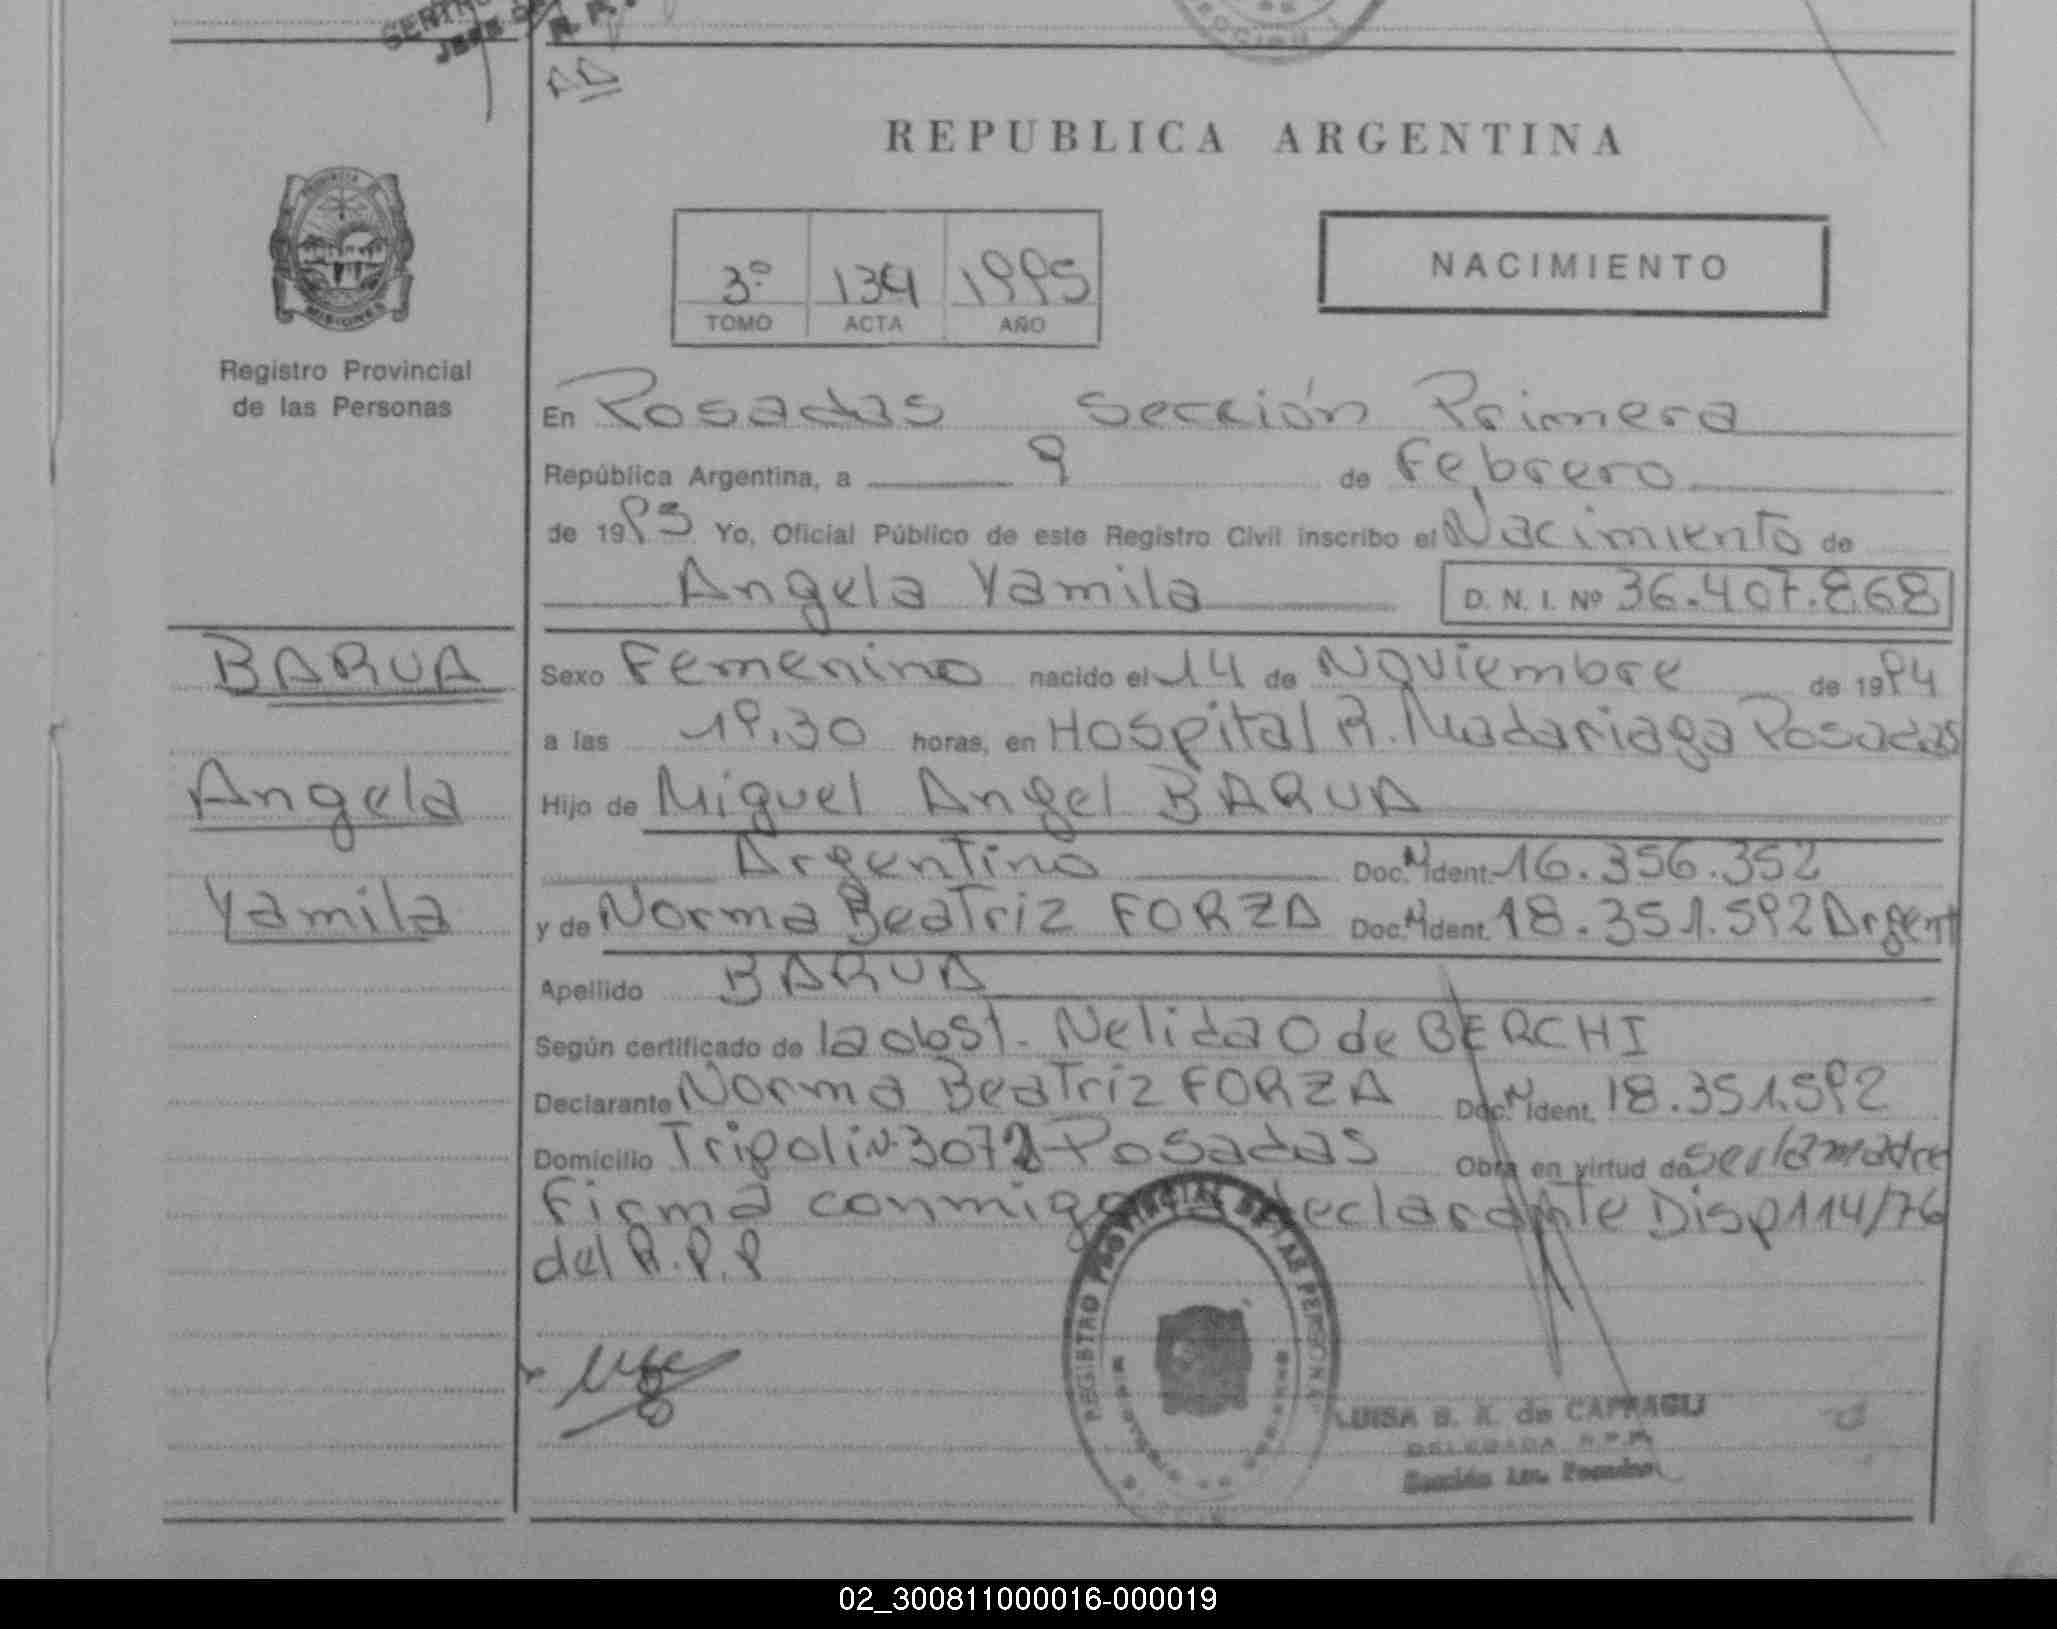 REPUBLICA ARGENTINA
PROVINCIA
MISIONES
Registro Provincial
de las Personas
3º 1995
TOMO ACTA AÑO
NACIMIENTO
En Posadas Sección Primera
República Argentina, a 9 de Febrero
de 1995 Yo, Oficial Público de este Registro Civil inscribo el Nacimiento de
Angela Yamila D. N. I. Nº 36.407.868
BARUA
Angela
Yamila
Sexo Femenino nacido el 14 de Noviembre de 1994
a las 19.30 horas, en Hospital R. Madariaga Posadas
Hijo de Miguel Angel BARUA
Argentino Doc. Ident. 16.356.352
y de Norma Beatriz FORZA Doc. Ident. 18.351.592 Argent
Apellido BARUA
Según certificado de la obst. Nelida O de BERCHI
Declarante Norma Beatriz FORZA Doc. Ident. 18.351.592
Domicilio Tripoli Nº Posadas Obra en virtud de ser la madre
Firma conmigo declarante Disp 114/76
del R.P.P
REGISTRO PROVINCIAL DE LAS PERSONAS
LUISA B. K. de
DELEGADA R.P.P.
Sección 1ra. Posadas
02_300811000016-000019